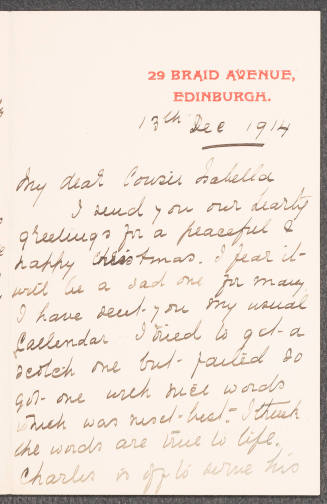 29 BRAID AVENUE,
EDINBURGH.
13th Dec 1914
My dear Cousin Isabella
I send you our hearty
greetings for a peaceful &
happy Christmas. I fear it
will be a sad one for many
I have sent you my usual
Callendar. I tried to get a
scotch one but failed so
got one with nice words
which was next best. I think
the words are true to life.
Charles is off to serve his